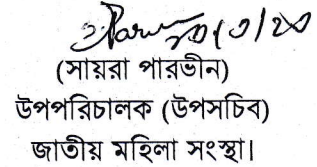 (সায়রা পারভীন)
উপপরিচালক (উপসচিব)
জাতীয় মহিলা সংস্থা।